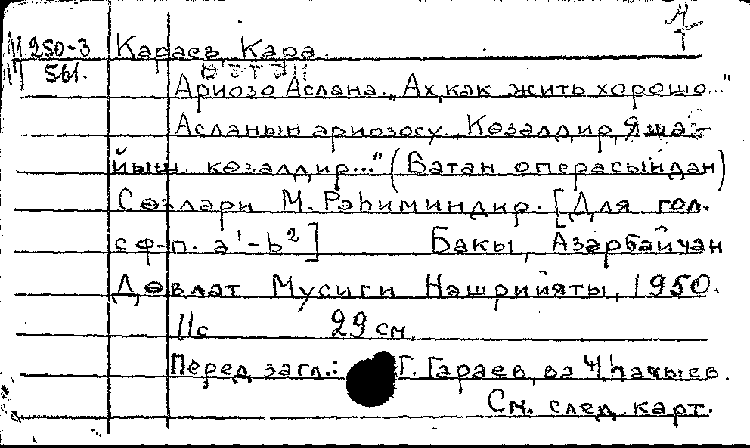 250-3 Караев, Кара.
561.
Ариозо Аслана. „Ах, как жить хорошо..."
Асланын ариозосу „Көзәлдир, яша-
йыш көзәлдир..." (Вәтән операсындан)
Сөзләри М. Рәһиминдир. [Для гол.
с ф-п. a¹-b²] Бакы, Азәрбайҹан
Дөвләт Мусиги Нәшрийяты, 1950.
11с 29 см.
Перед загл.: Г. Гараев, вә Һаҹыев.
См. след. карт.